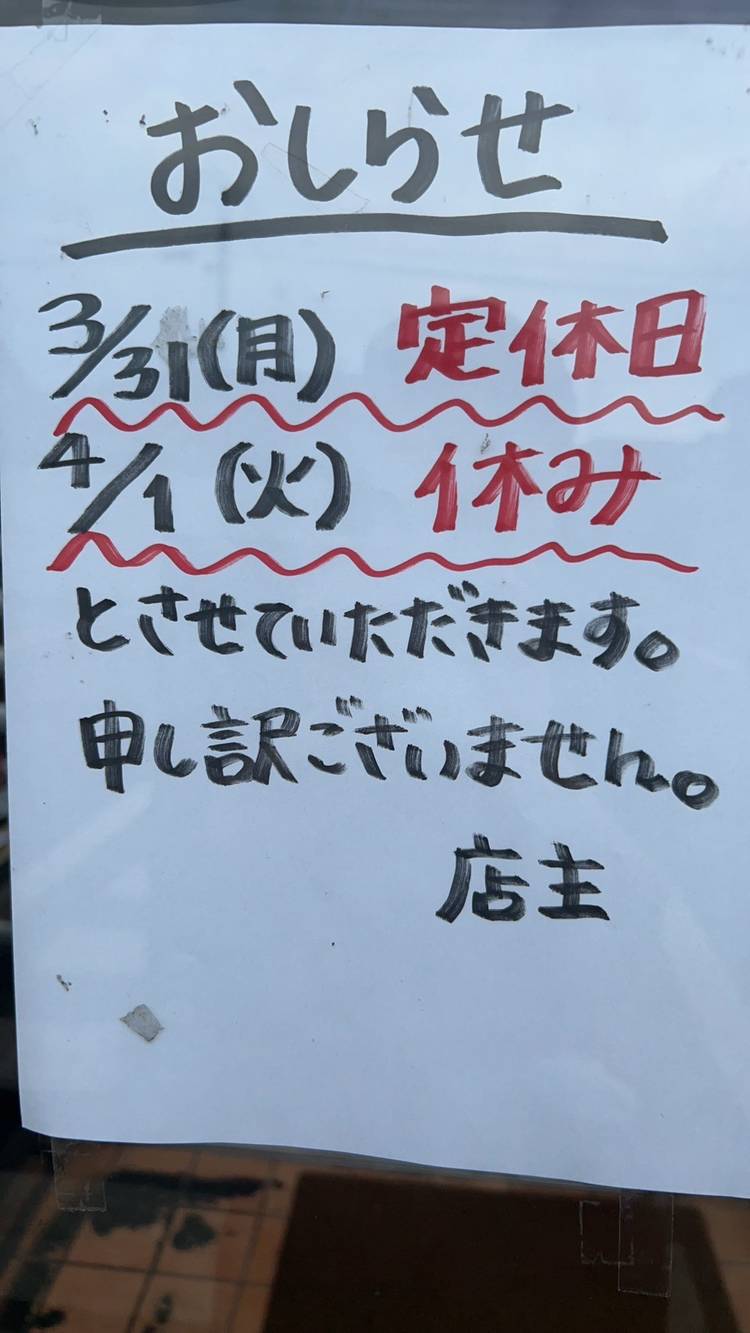 おしらせ
3/31(月) 定休日
4/1(火) 休み
とさせていただきます。
申し訳ございません。
店主